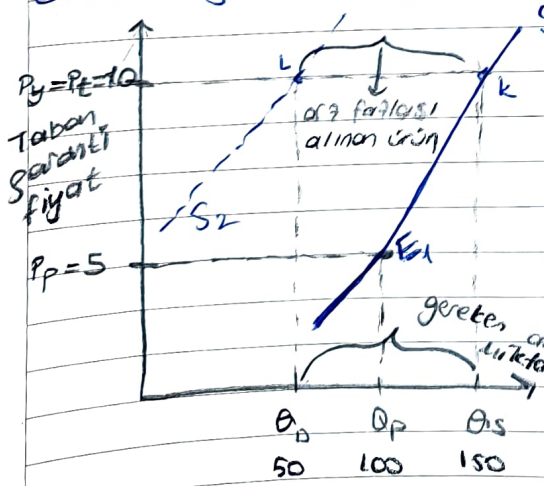 L
K
Py=Pt=10
Taban
Garanti
fiyat
arz fazlası
alınan ürün
S2
Pp=5
E1
gereken
QD Qp QS
50 100 150